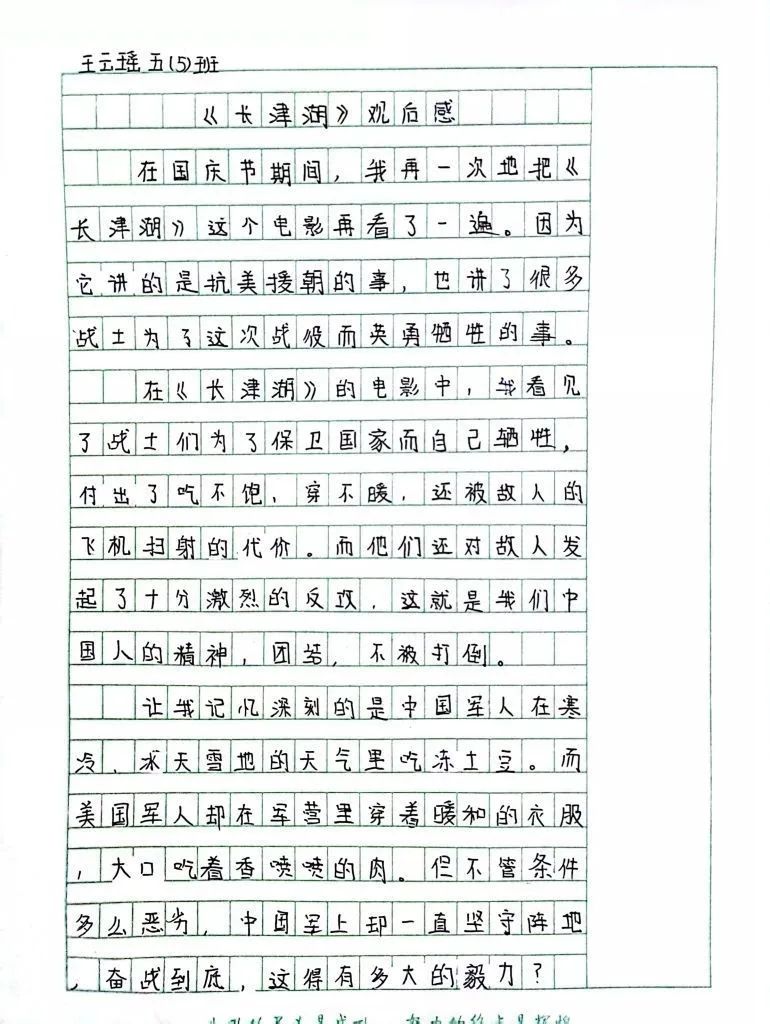 王云瑶 五(5)班
《长津湖》观后感
在国庆节期间,我再一次地把《
长津湖》这个电影再看了一遍。因为
它讲的是抗美援朝的事,也讲了很多
战士为了这次战役而英勇牺牲的事。
在《长津湖》的电影中,我看见
了战士们为了保卫国家而自己牺牲,
付出了吃不饱,穿不暖,还被故人的
飞机扫射的代价。而他们还对故人发
起了十分激烈的反攻,这就是我们中
国人的精神,团结,不被打倒。
让我记忆深刻的是中国军人在寒
冷,冰天雪地的天气里吃冻土豆。而
美国军人却在军营里穿着暖和的衣服
,大口吃着香喷喷的肉。但不管条件
多么恶劣,中国军上却一直坚守阵地
,奋战到底,这得有多大的毅力?